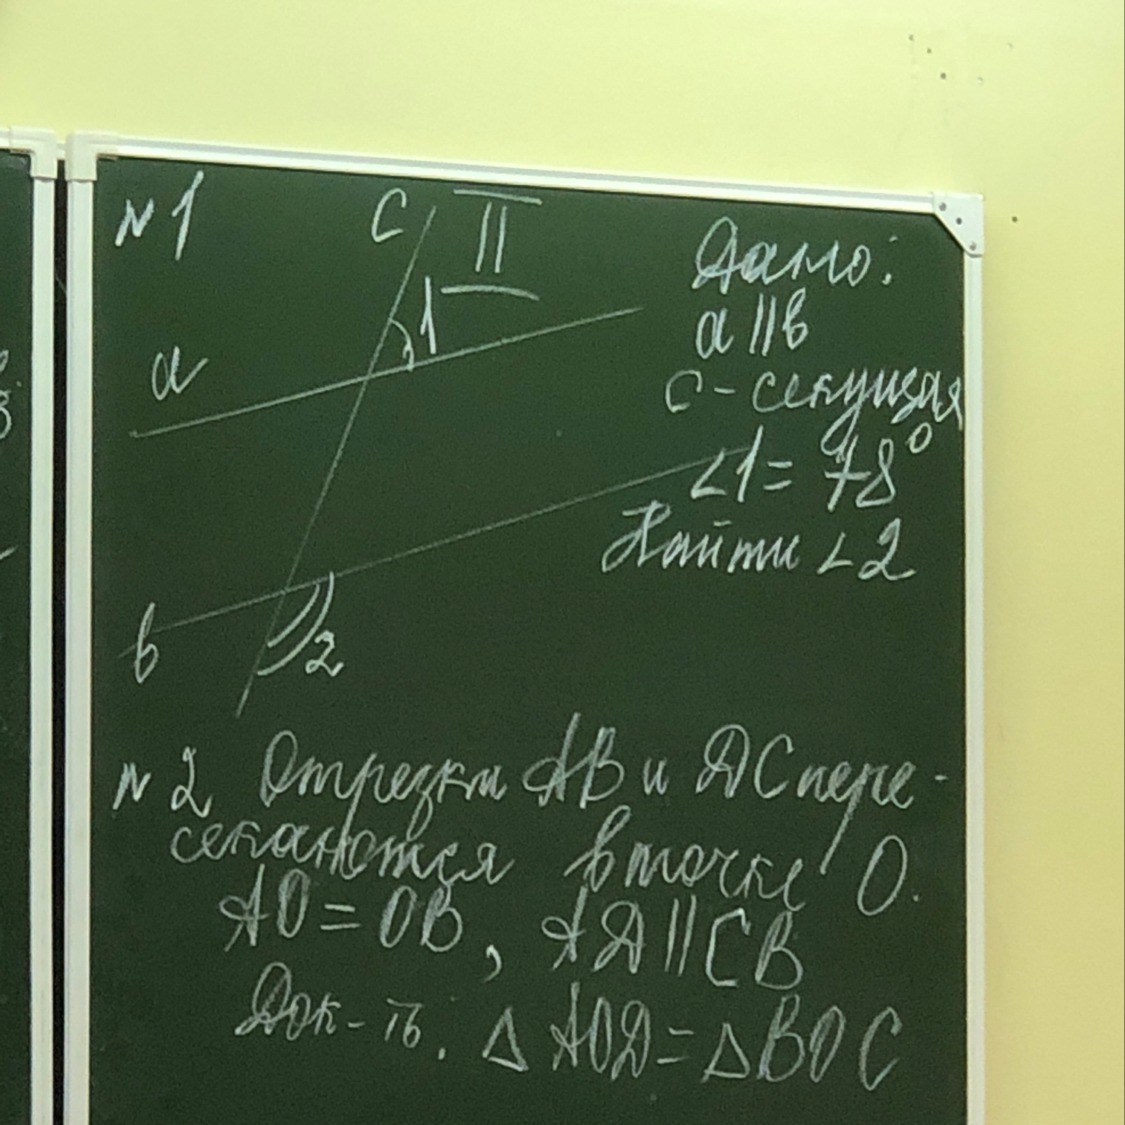 №1
II
c
1
a
b
2
Дано:
a || b
c - секущая
∠1 = 78°
Найти ∠2
№2 Отрезки AB и DC пере-
секаются в точке O.
AO = OB, AD || CB
Док-ть: △ AOD = △ BOC